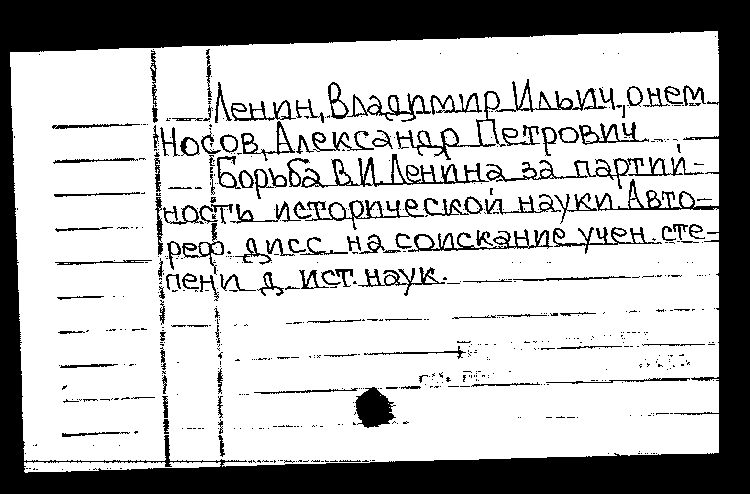 Ленин, Владимир Ильич, о нем
Носов, Александр Петрович
Борьба В.И. Ленина за партий-
ность исторической науки. Авто-
реф. дисс. на соискание учен. сте-
пени д. ист. наук.